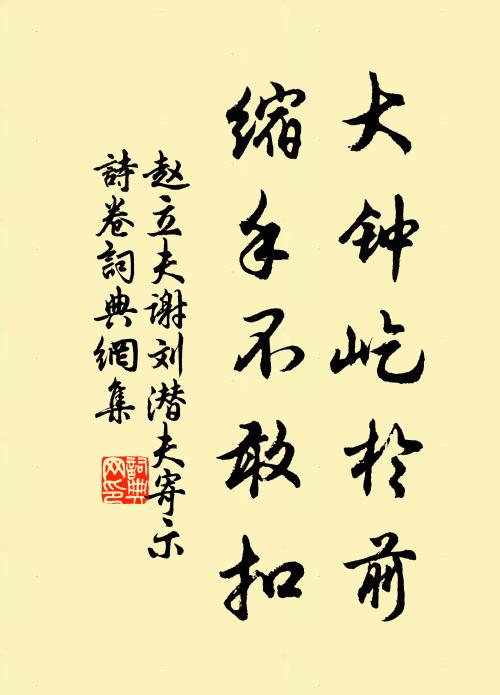 大钟屹於前
缩手不敢扣
赵立夫谢刘潜夫寄示
詩卷詞典網集
詞典网印